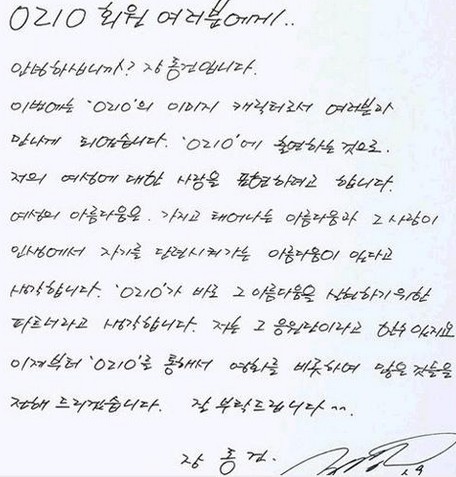 O2IO 회원 여러분에게..
안녕하십니까? 장동건입니다.
이번에는 'O2IO'의 이미지 캐릭터로서 여러분과
만나게 되었습니다. 'O2IO'에 출연하는 것으로.
저의 여성에 대한 사랑을 표현하려고 합니다.
여성의 아름다움을. 가지고 태어나는 아름다움과 그 사람이
인생에서 자기를 단련시켜가는 아름다움이 있다고
생각합니다. 'O2IO'가 바로 그 아름다움을 실현하기 위한
파트너라고 생각합니다. 저는 그 응원단이라고 할수 있지요
이제부터 'O2IO'를 통해서 영화를 비롯하여 많은 것들을
전해 드리겠습니다. 잘 부탁드립니다^^.
장 동 건.